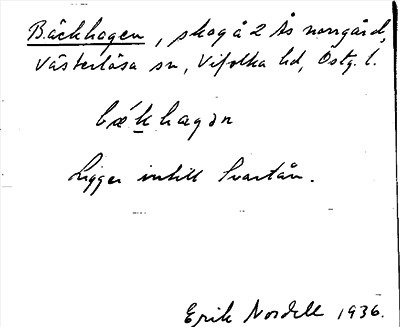 Bäckhagen, skog å 2 Ås norrgård,
Västerlösa sn, Vifolka hd, Östg. l.
bǽḵhagən
Ligger intill Svartån.
Erik Nordell 1936.